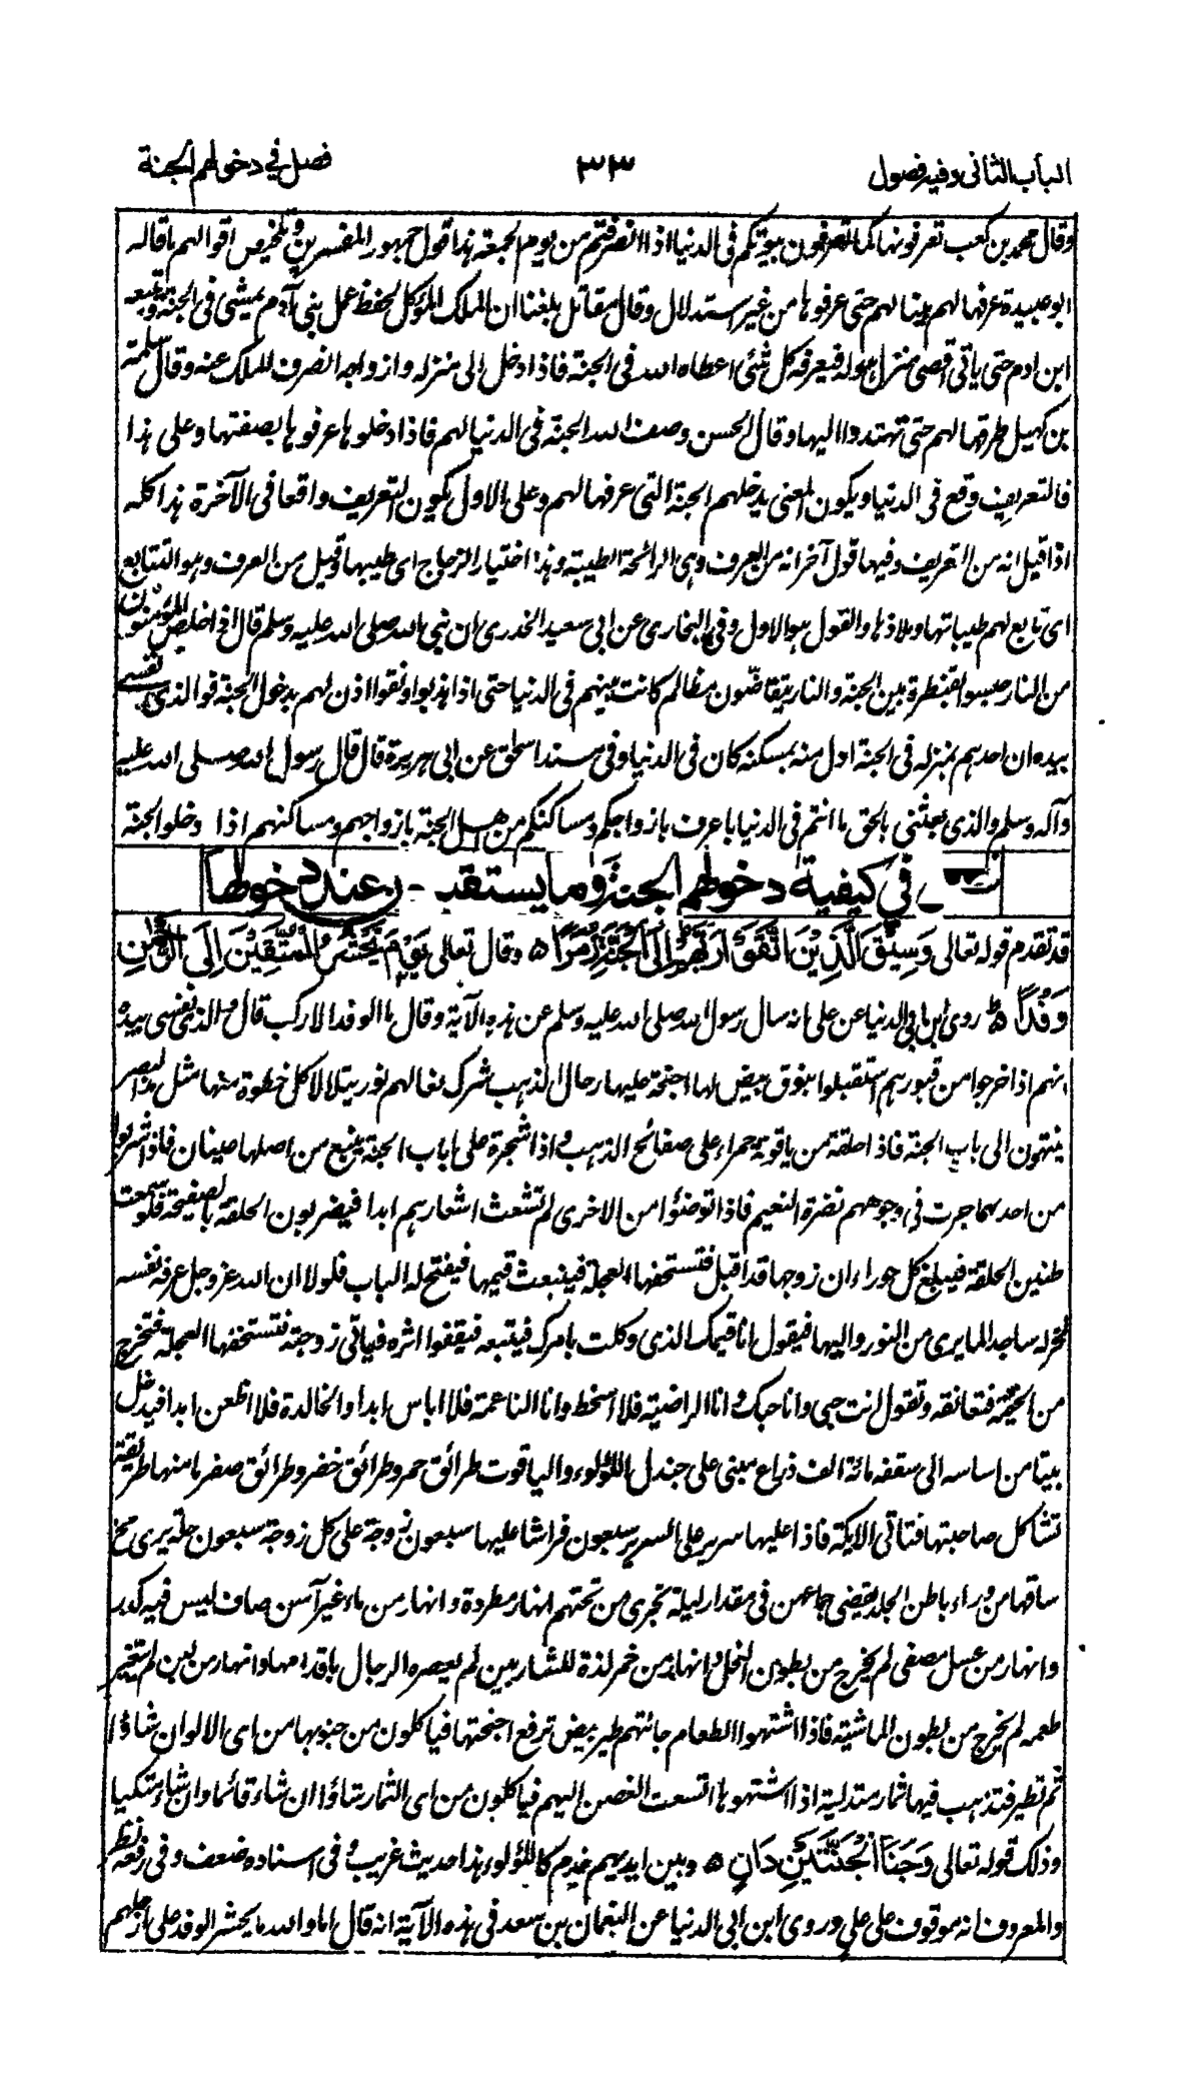 الباب الثانى وفيه فصول ٣٣ فصل في دخولهم الجنة
وقال محمد بن كعب تعرفونها كما تعرفون بيوتكم فى الدنيا اذا انصرفتم من يوم الجمعة هذا قول جمهور المفسرين وتلخيص اقوالهم ما قاله
ابو عبيدة عرفها لهم بينها لهم حتى عرفوها من غير استدلال وقال مقاتل بلغنا ان الملك الموكل بحفظ عمل بنى آدم يمشى فى الجنة ويتبعه
ابن ادم حتى ياتى اقصى منزل هو له فيعرفه كل شئ اعطاه الله فى الجنة فاذا دخل الى منزله وازواجه انصرف الملك عنه وقال سلمة
بن كهيل طرقها لهم حتى تهتدوا اليها وقال الحسن وصف الله الجنة فى الدنيا لهم فاذا دخلوها عرفوها بصفتها وعلى هذا
فالتعريف وقع فى الدنيا ويكون المعنى يدخلهم الجنة التى عرفها لهم وعلى الاول يكون التعريف واقعا فى الآخرة هذا كله
اذا قيل انه من التعريف وفيها قول آخر انه من العرف وهى الرائحة الطيبة وهذا اختيار الزجاج اى طيبها وقيل من العرف وهو التتابع
اى تابع لهم طيباتها وملاذها والقول هو الاول وفى البخارى عن ابى سعيد الخدرى ان نبى الله صلى الله عليه وسلم قال اذا خلص المؤمنون
من النار حبسوا بقنطرة بين الجنة والنار يتقاضون مظالم كانت بينهم فى الدنيا حتى اذا هذبوا ونقوا اذن لهم بدخول الجنة فوالذى نفسى
بيده ان احدهم بمنزله فى الجنة ادل منه بمسكنه كان فى الدنيا وفى مسند اسحق عن ابى هريرة قال قال رسول الله صلى الله عليه
وآله وسلم والذى بعثنى بالحق ما انتم فى الدنيا باعرف بازواجكم ومساكنكم من اهل الجنة بازواجهم ومساكنهم اذا دخلوا الجنة
في كيفية دخولهم الجنة وما يستقبلون عند دخولها
قد تقدم قوله تعالى وَسِيْقَ الَّذِيْنَ اتَّقَوْا رَبَّهُمْ اِلَى الْجَنَّةِ زُمَرًا ٥ وقال تعالى يَوْمَ نَحْشُرُ الْمُتَّقِيْنَ اِلَى الرَّحْمٰنِ
وَفْدًا ٥ روى ابن ابى الدنيا عن على انه سال رسول الله صلى الله عليه وسلم عن هذه الآية وقال ما الوفد الا ركب قال والذى نفسى بيده
انهم اذا خرجوا من قبورهم استقبلوا بنوق بيض لها اجنحة عليها رحال الذهب شرك نعالهم نور يتلالا كل خطوة منها مثل مد البصر
ينتهون الى باب الجنة فاذا حلقة من ياقوتة حمراء على صفائح الذهب واذا شجرة على باب الجنة ينبع من اصلها عينان فاذا شربوا
من احدهما جرت فى وجوههم نضرة النعيم فاذا توضئوا من الاخرى لم تشعث اشعارهم ابدا فيضربون الحلقة بالصفيحة فلو سمعت
طنين الحلقة فيبلغ كل حوراء ان زوجها قد اقبل فتستخفها العجلة فينبعث قيمها فيفتح له الباب فلولا ان الله عز وجل عرفه نفسه
لخر له ساجدا لما يرى من النور والبهاء فيقول انا قيمك الذى وكلت بامرك فيتبعه فيقفوا اثره فياتى زوجته فتستخفها العجلة فتخرج
من الخيمة فتعانقه وتقول انت حبى وانا حبك وانا الراضية فلا اسخط وانا الناعمة فلا اباس ابدا والخالدة فلا اظعن ابدا فيدخل
بيتا من اساسه الى سقفه مائة الف ذراع مبنى على جندل اللؤلوء والياقوت طرائق حمر وطرائق خضر وطرائق صفر ما منها طريقة
تشاكل صاحبتها فتاتى الاريكة فاذا عليها سرير على السرير سبعون فراشا عليها سبعون زوجة على كل زوجة سبعون حلة يرى مخ
ساقها من وراء باطن الجلد يقضى جماعهن فى مقدار ليلة تجرى من تحتهم انهار مطردة وانهار من ماء غير آسن صاف ليس فيه كدر
وانهار من عسل مصفى لم يخرج من بطون النحل وانهار من خمر لذة للشاربين لم يعصره الرجال باقدامها وانهار من لبن لم يتغير
طعمه لم يخرج من بطون الماشية فاذا اشتهوا الطعام جائتهم طير بيض ترفع اجنحتها فياكلون من جنوبها من اى الالوان شاؤا
ثم تطير فتذهب فيها ثمار متدلية اذا اشتهوها اتسعت الغصن اليهم فياكلون من اى الثمار شاؤا ان شاء قائما وان شاء متكيا
وذلك قوله تعالى وَجَنَا الْجَنَّتَيْنِ دَانٍ ٥ وبين ايديهم خدم كاللؤلوء هذا حديث غريب وفى اسناده ضعف وفى رفعه نظر
والمعروف انه موقوف على على وروى ابن ابى الدنيا عن النعمان بن سعد فى هذه الآية انه قال اما والله ما يحشر الوفد على ارجلهم